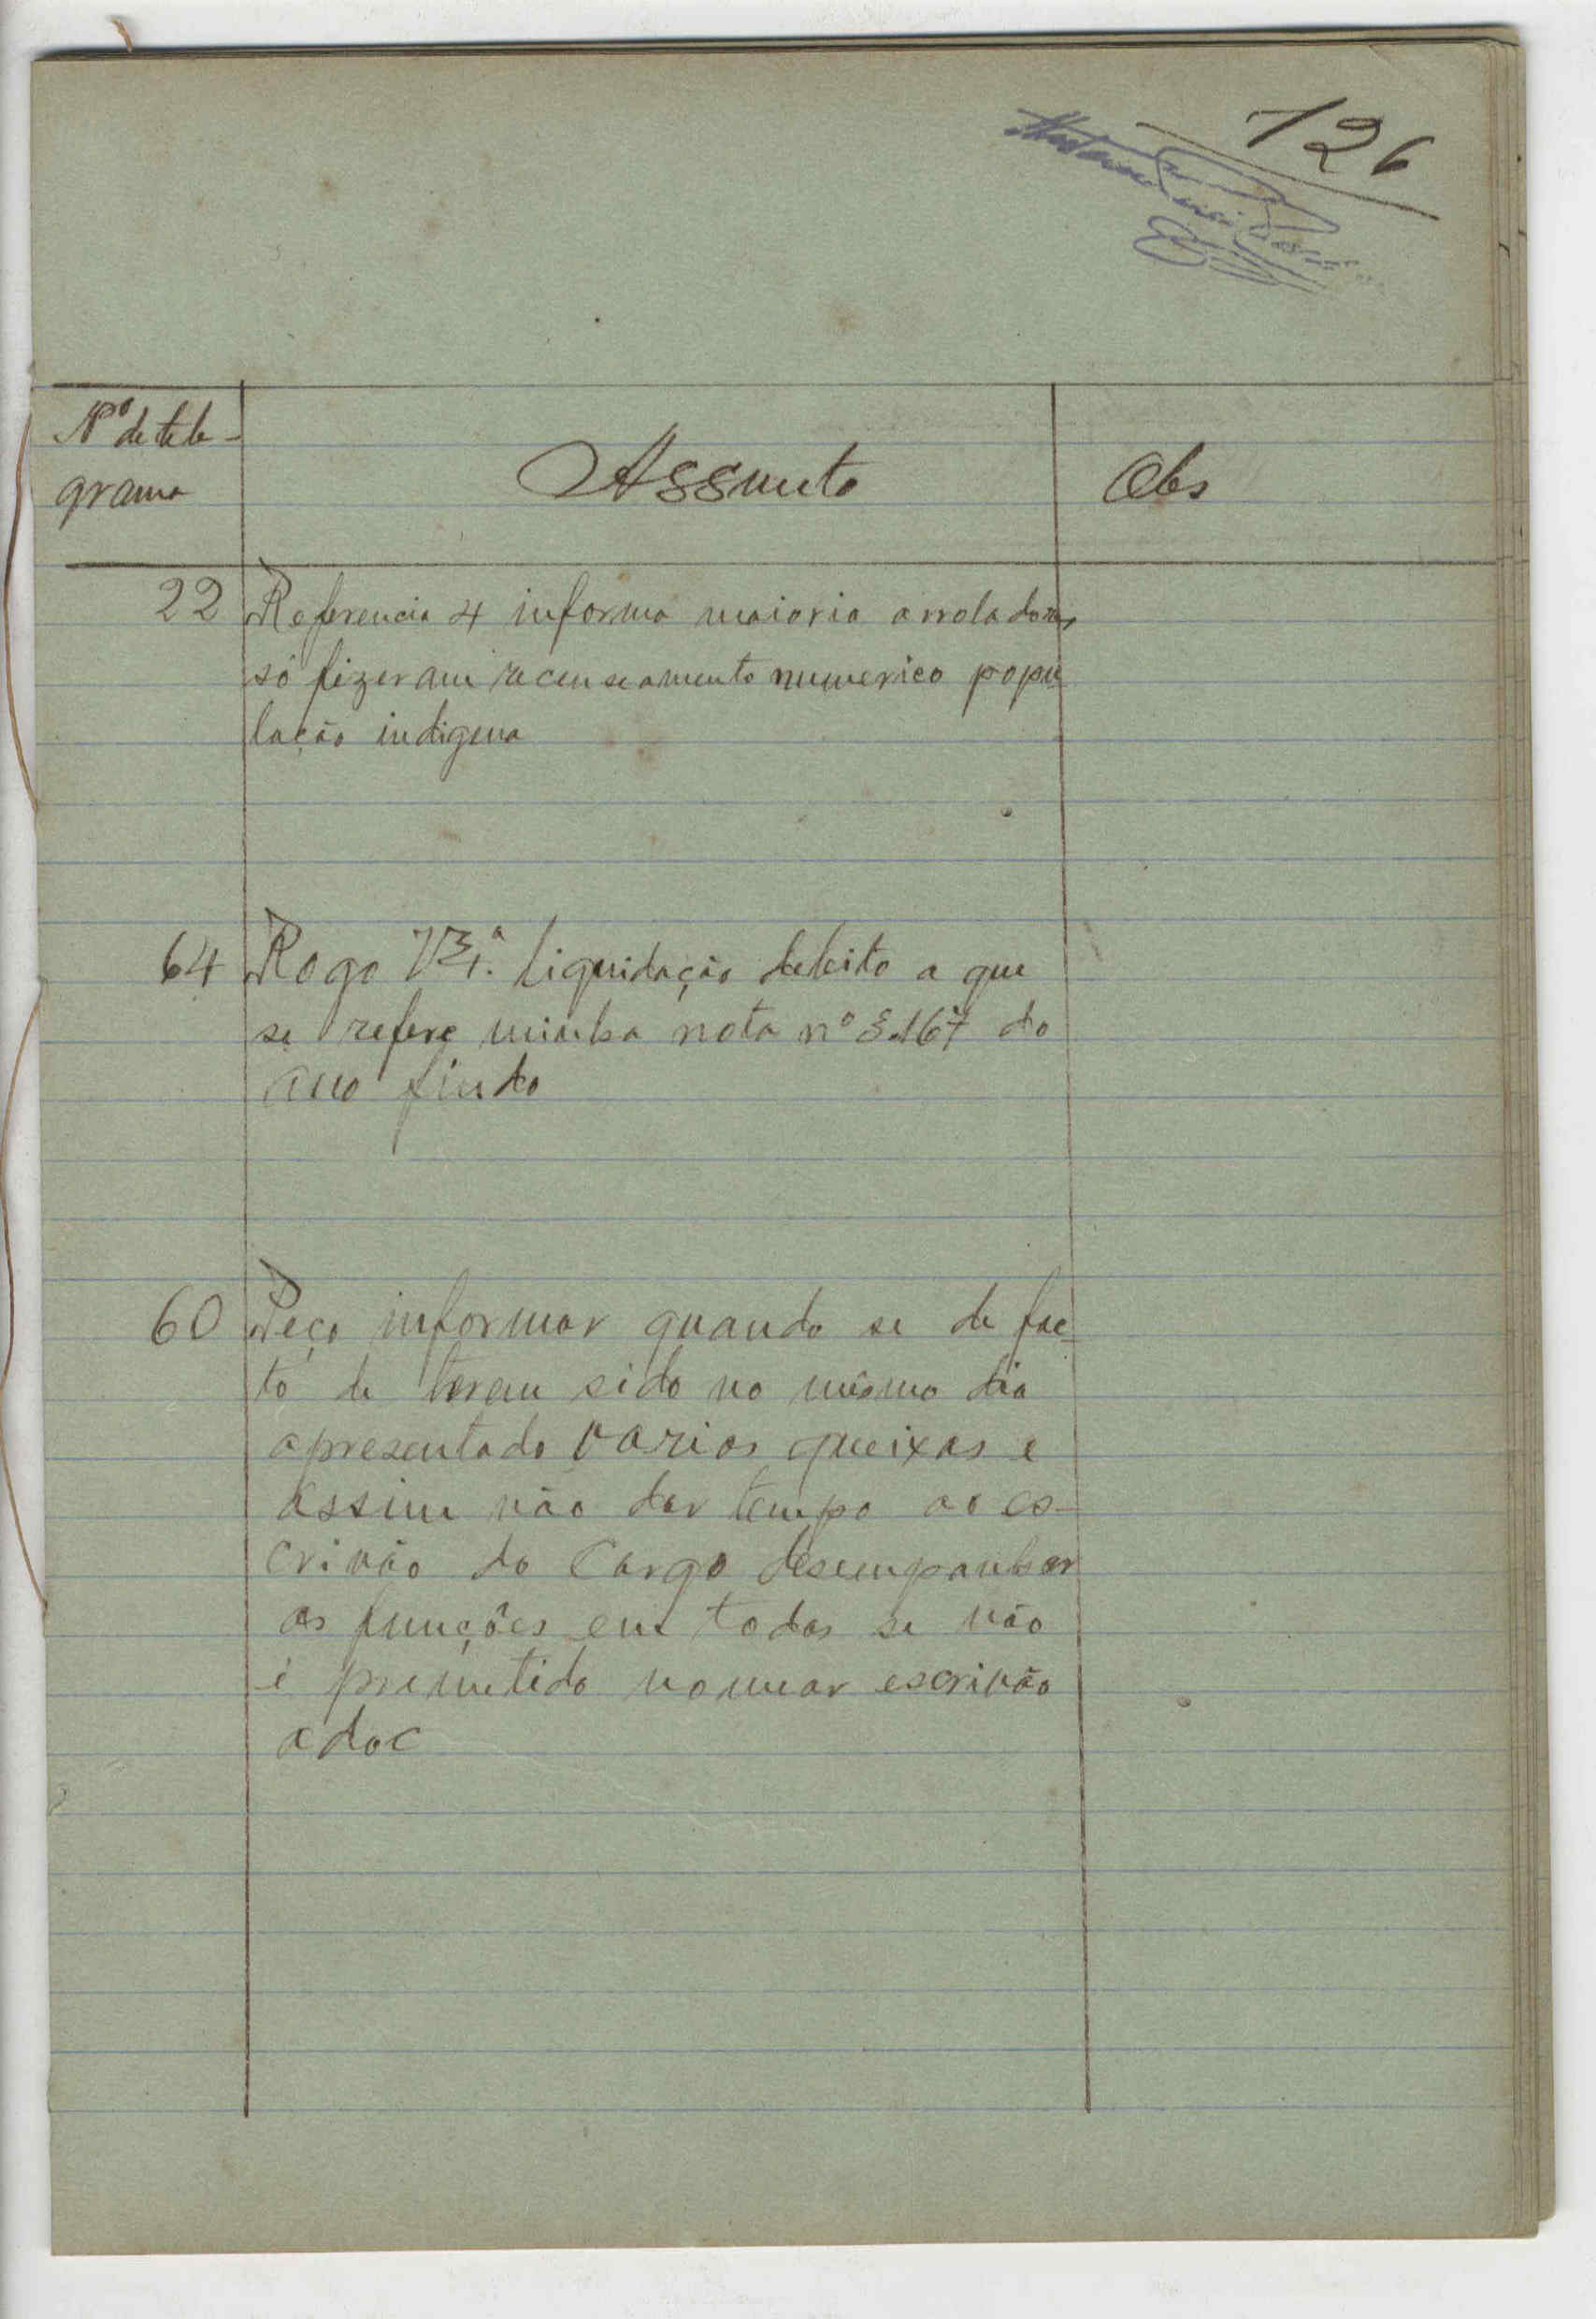 126
Nº de tele-
grama
Assunto
Obs
22 Referencia 4 informo maioria arroladores
só fizeram recenseamento numerico popu
lação indigena
64 Rogo V Liquidação debito a que
se refere minha nota nº 3.167 do
ano findo
60 Peço informar quando se de fac
to de terem sido no mesmo dia
apresentado varias queixas e
assim não dar tempo ao es-
crivão do Cargo desempanhar
as funções em todas se não
é premetido nomear escrivão
adoc